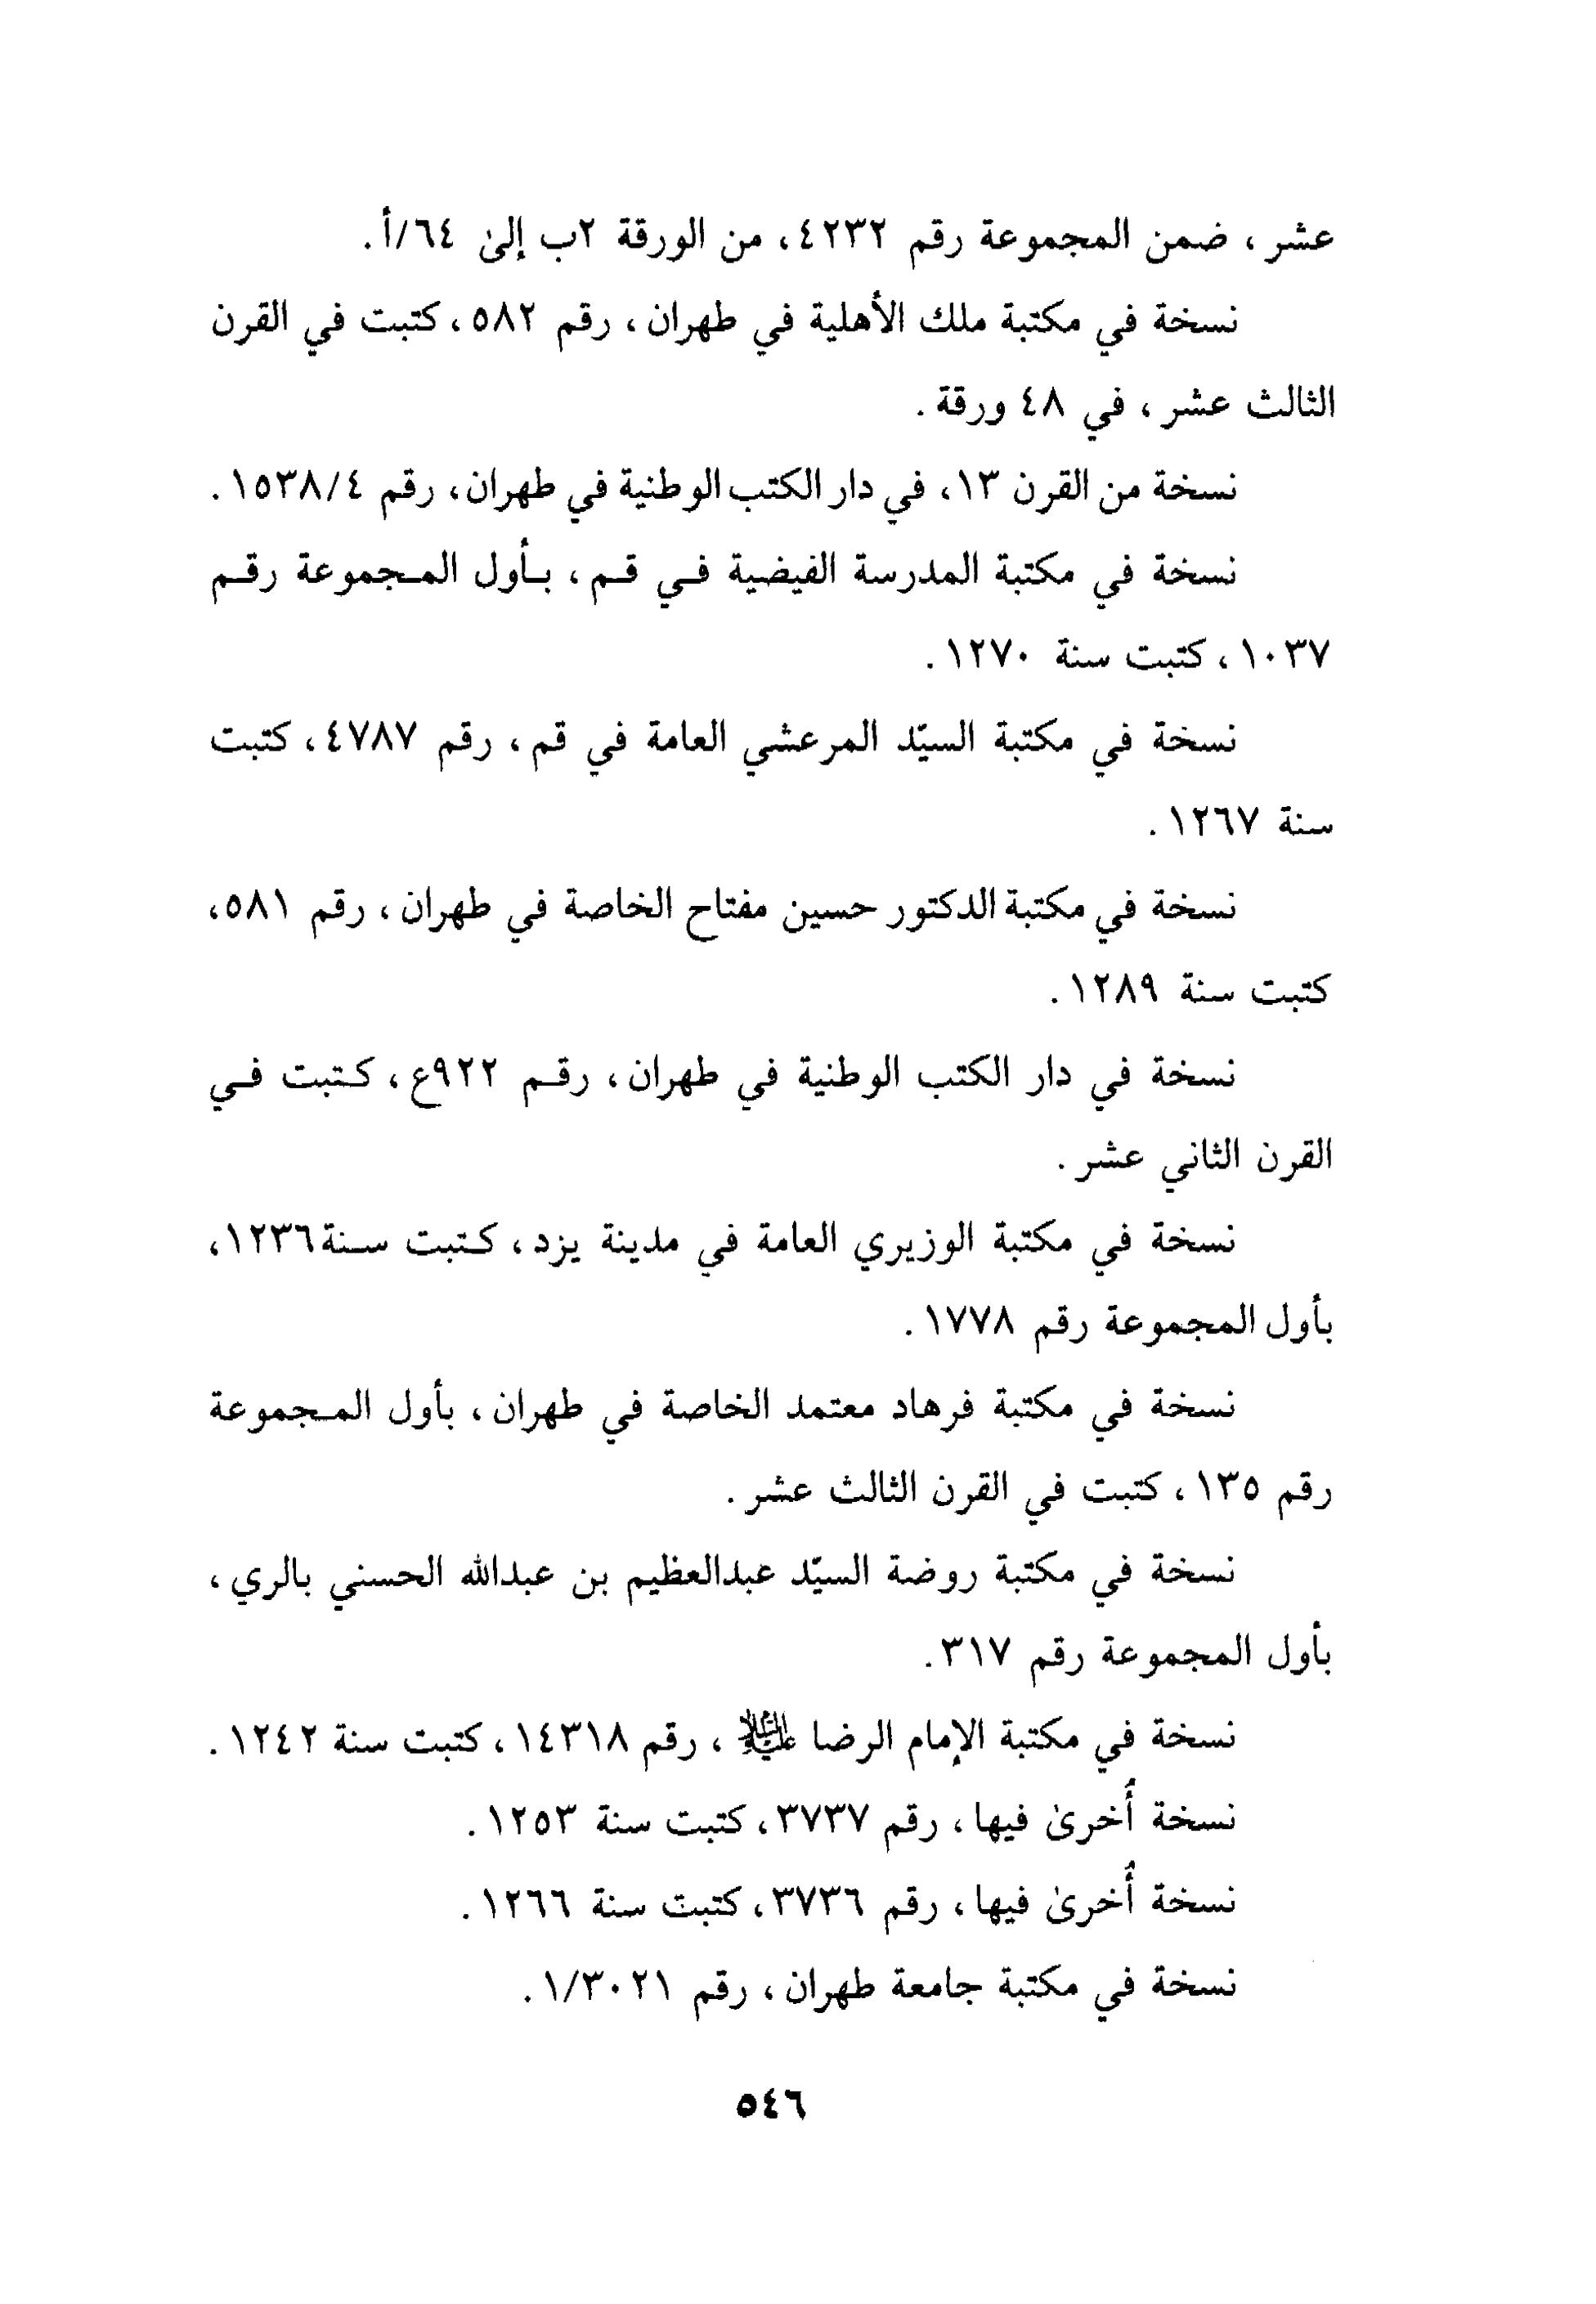 عشر ، ضمن المجموعة رقم ٤٢٣٢، من الورقة ٢ب إلىٰ ٦٤/أ.
نسخة في مكتبة ملك الأهلية في طهران ، رقم ٥٨٢، كتبت في القرن
الثالث عشر ، في ٤٨ ورقة .
نسخة من القرن ١٣، في دار الكتب الوطنية في طهران، رقم ١٥٣٨/٤ .
نسخة في مكتبة المدرسة الفيضية في قم ، بأول المجموعة رقم
١٠٣٧، كتبت سنة ١٢٧٠.
نسخة في مكتبة السيّد المرعشي العامة في قم، رقم ٤٧٨٧، كتبت
سنة ١٢٦٧ .
نسخة في مكتبة الدكتور حسين مفتاح الخاصة في طهران ، رقم ٥٨١،
كتبت سنة ١٢٨٩ .
نسخة في دار الكتب الوطنية في طهران، رقم ٩٢٢ع، كتبت في
القرن الثاني عشر .
نسخة في مكتبة الوزيري العامة في مدينة يزد، كتبت سنة١٢٣٦،
بأول المجموعة رقم ١٧٧٨ .
نسخة في مكتبة فرهاد معتمد الخاصة في طهران، بأول المجموعة
رقم ١٣٥، كتبت في القرن الثالث عشر .
نسخة في مكتبة روضة السيّد عبدالعظيم بن عبدالله الحسني بالري ،
بأول المجموعة رقم ٣١٧.
نسخة في مكتبة الإمام الرضا عليه السلام ، رقم ١٤٣١٨، كتبت سنة ١٢٤٢ .
نسخة أُخرىٰ فيها، رقم ٣٧٣٧، كتبت سنة ١٢٥٣ .
نسخة أُخرىٰ فيها، رقم ٣٧٣٦، كتبت سنة ١٢٦٦ .
نسخة في مكتبة جامعة طهران ، رقم ١/٣٠٢١ .
٥٤٦